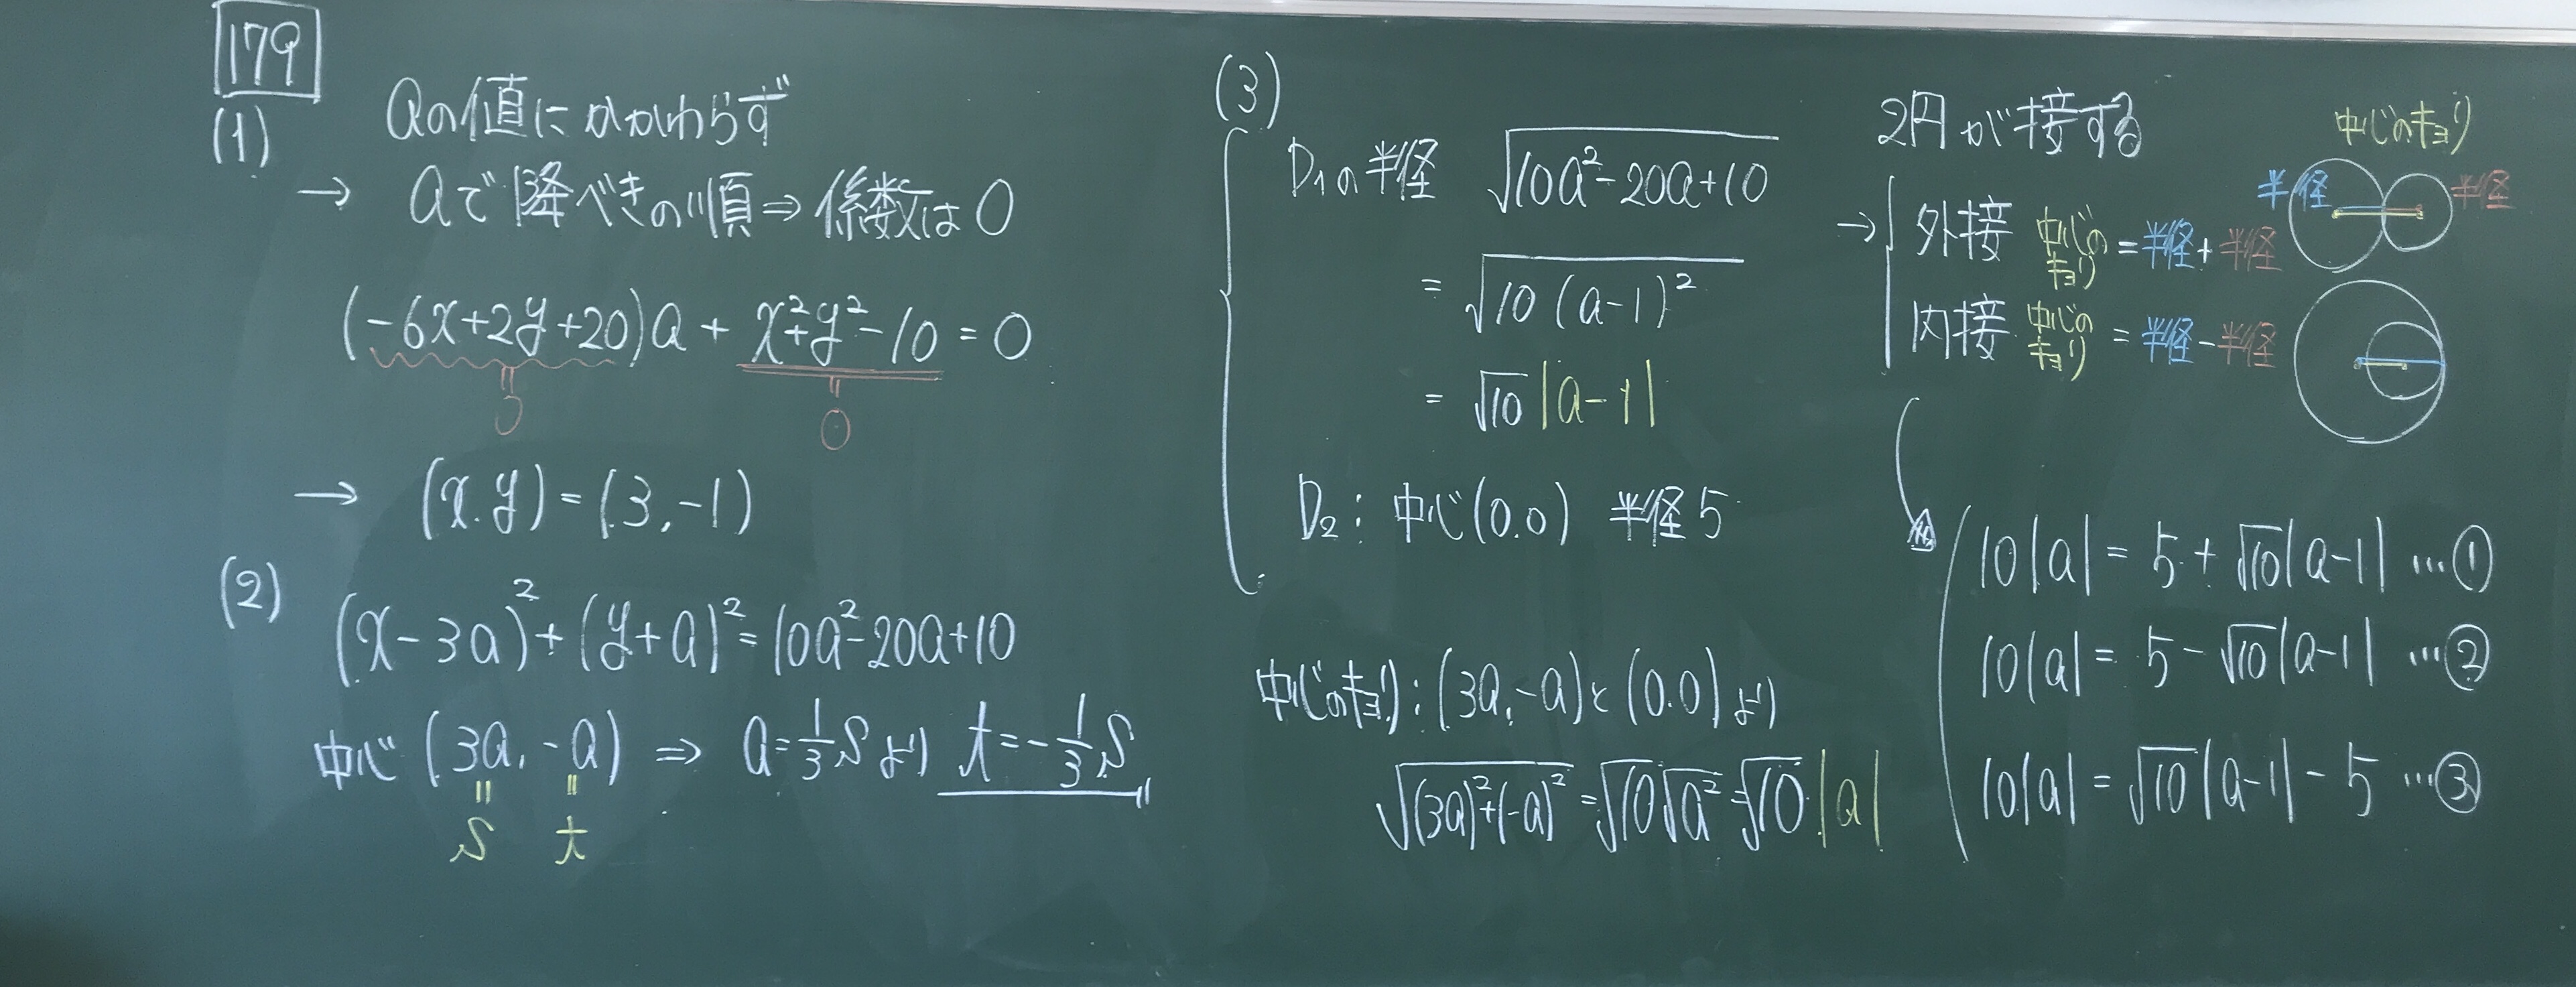 179
(1)
aの値にかかわらず
→ aで降べきの順⇒係数は0
(-6x+2y+20)a + x²+y²-10 = 0
0 0
→ (x.y)=(3,-1)
(2)
(x-3a)²+(y+a)²=10a²-20a+10
中心(3a,-a) ⇒ a=1/3 sより t=-1/3 s
s t
(3)
D₁の半径 √(10a²-20a+10)
= √(10(a-1)²)
= √10|a-1|
D₂:中心(0.0) 半径5
中心のキョリ:(3a,-a)と(0.0)より
√((3a)²+(-a)²)=√10√a²=√10|a|
2円が接する
中心のキョリ
半径 半径
→ 外接 中心のキョリ=半径+半径
内接 中心のキョリ=半径-半径
10|a|=5+√10|a-1| …①
10|a|=5-√10|a-1| …②
10|a|=√10|a-1|-5 …③